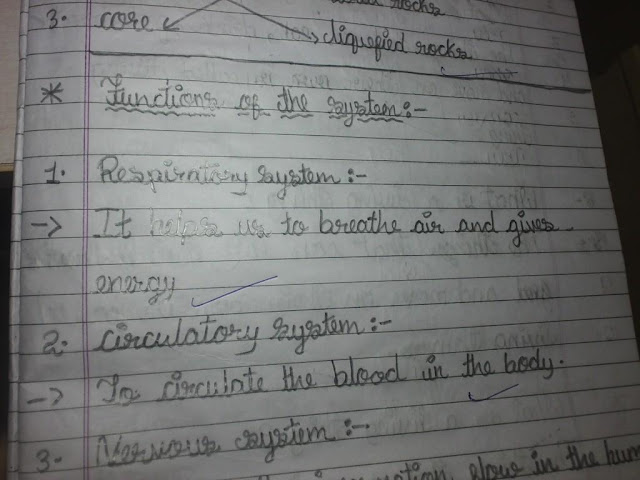 rocks
3. core
liquefied rocks
* Functions of the system :-
1. Respiratory system :-
→ It helps us to breathe air and gives
energy
2. circulatory system :-
→ To circulate the blood in the body.
3. Nervous system :-
in the hum